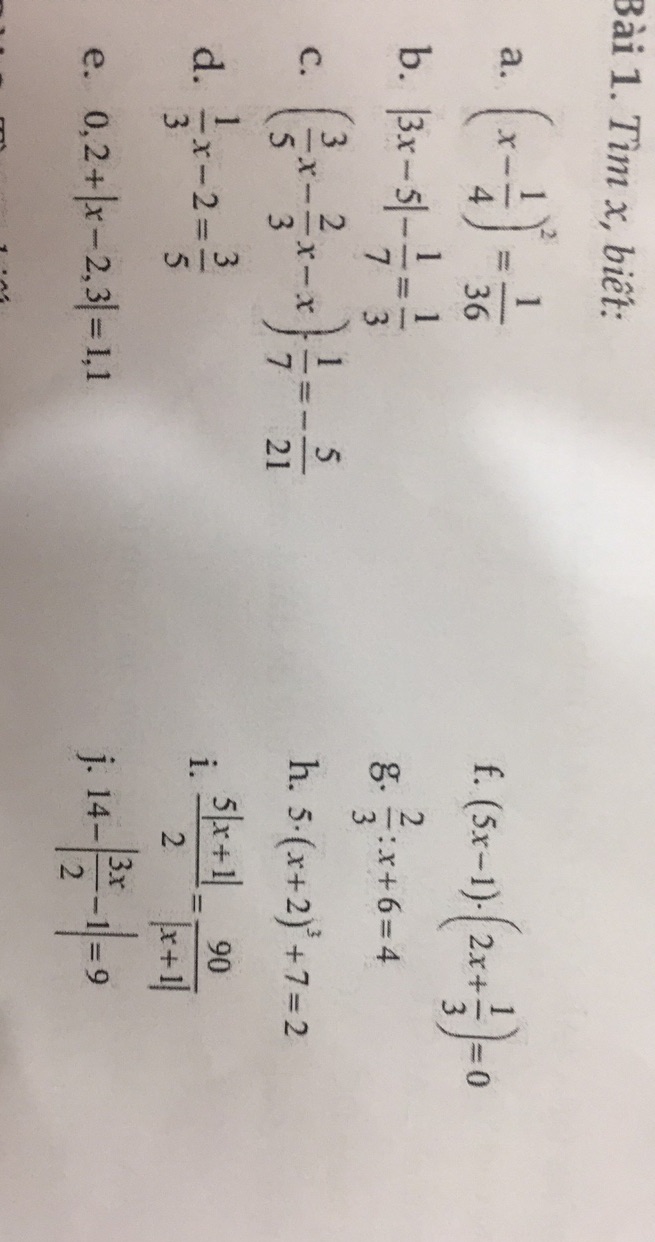 Bài 1. Tìm x, biết:
a. (x − 1/4)² = 1/36
b. |3x − 5| − 1/7 = 1/3
c. (3/5 x − 2/3 x − x) · 1/7 = − 5/21
d. 1/3 x − 2 = 3/5
e. 0,2 + |x − 2,3| = 1,1
f. (5x − 1) · (2x + 1/3) = 0
g. 2/3 : x + 6 = 4
h. 5 · (x + 2)³ + 7 = 2
i. 5|x + 1|/2 = 90/|x + 1|
j. 14 − |3x/2 − 1| = 9